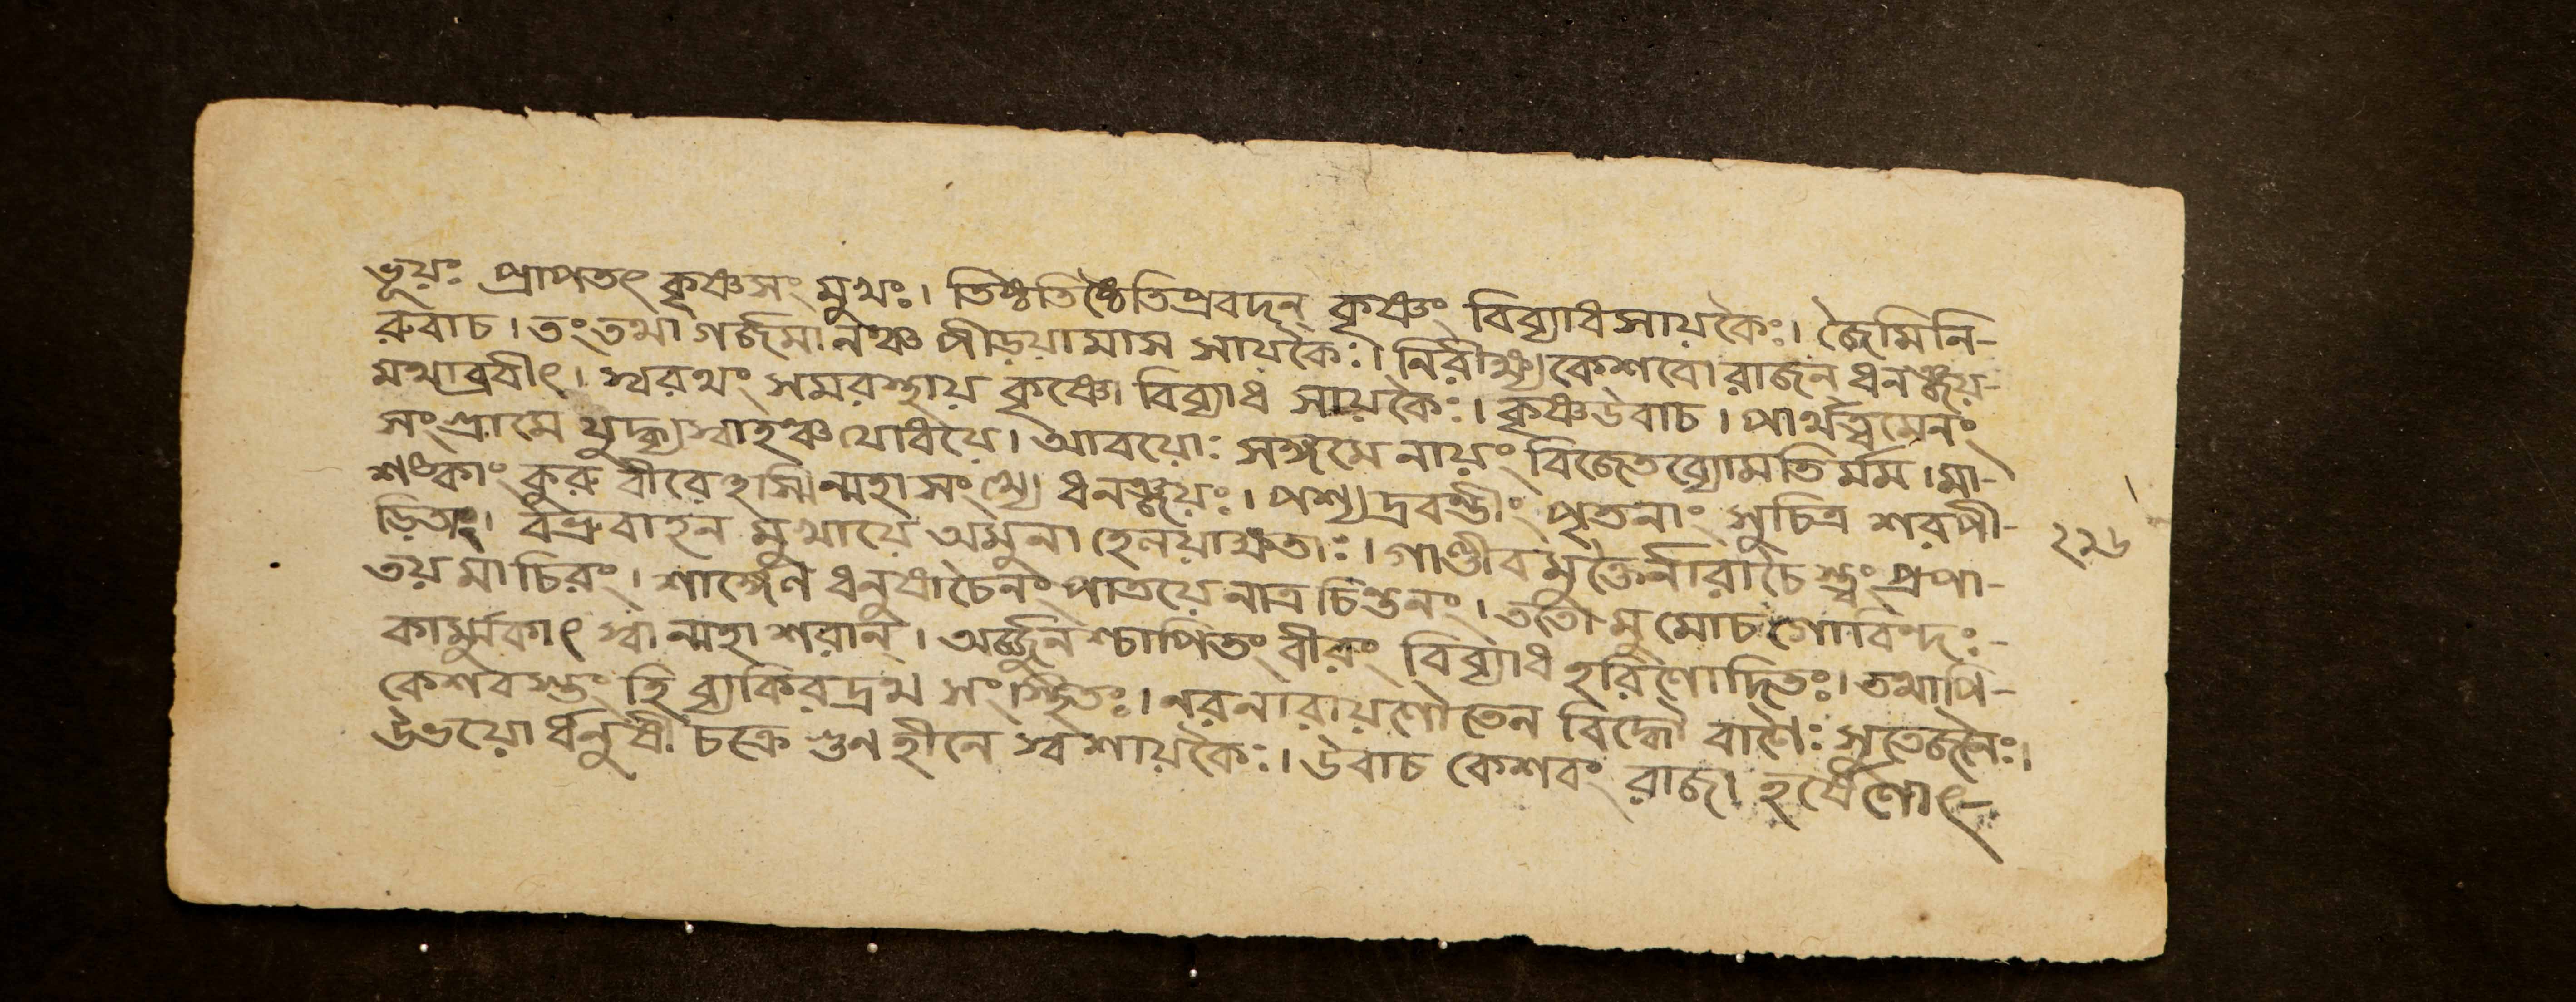 ভূয়ঃ প্রাপতৎ কৃষ্ণসং মুখঃ। তিষ্ঠতিষ্ঠেতিপ্রবদন্ কৃষ্ণং বিব্যাধসায়কৈঃ। জৈমিনি-
রুবাচ। তংতথা গর্জমানঞ্চ পীড়য়ামাস সায়কৈঃ। নির্বীক্ষ্য কেশবো রাজন্ ধনঞ্জয়-
মথাব্রবীৎ। স্বরথং সমরস্থায় কৃষ্ণো বিব্যাধ সায়কৈঃ। কৃষ্ণউবাচ। পার্থত্বমেনং
সংগ্রামে যুদ্ধ্যস্বাহঞ্চ যোধয়ে। আবয়োঃ সঙ্গমে নায়ং বিজেতব্যোমতি র্মম। মা-
শঙ্কাং কুরু বীরেহস্মিন্মহা সংখ্যে ধনঞ্জয়ঃ। পশ্যদ্রবন্তীং পৃতনাং সুচিত্র শরপী-
ড়িতাং। বভ্রুবাহন মুখায়ে অমুনা হেলয়াক্ষতাঃ। গাণ্ডীবমুক্তৈর্নারাচৈ স্ত্বং প্রপা-
তয় মা চিরং। শার্ঙ্গেণ ধনুষাচৈনং পাতয়ে নাত্র চিন্তনং। ততো মুমোচ গোবিন্দঃ-
কার্ম্মুকাৎ স্বান্মহা শরান্। অর্জ্জুনশ্চাপিতং বীরং বিব্যাধ হরিণোদিতঃ। তথাপি-
কেশবস্তং হি ব্যকিরদ্রথ সংস্থিতঃ। নরনারায়ণৌতেন বিদ্ধৌ বাণৈঃ সুতেজনৈঃ।
উভয়ো র্ধনুষী চক্রে গুণ হীনে স্বশায়কৈঃ। উবাচ কেশবং রাজা হর্ষেণোৎ-